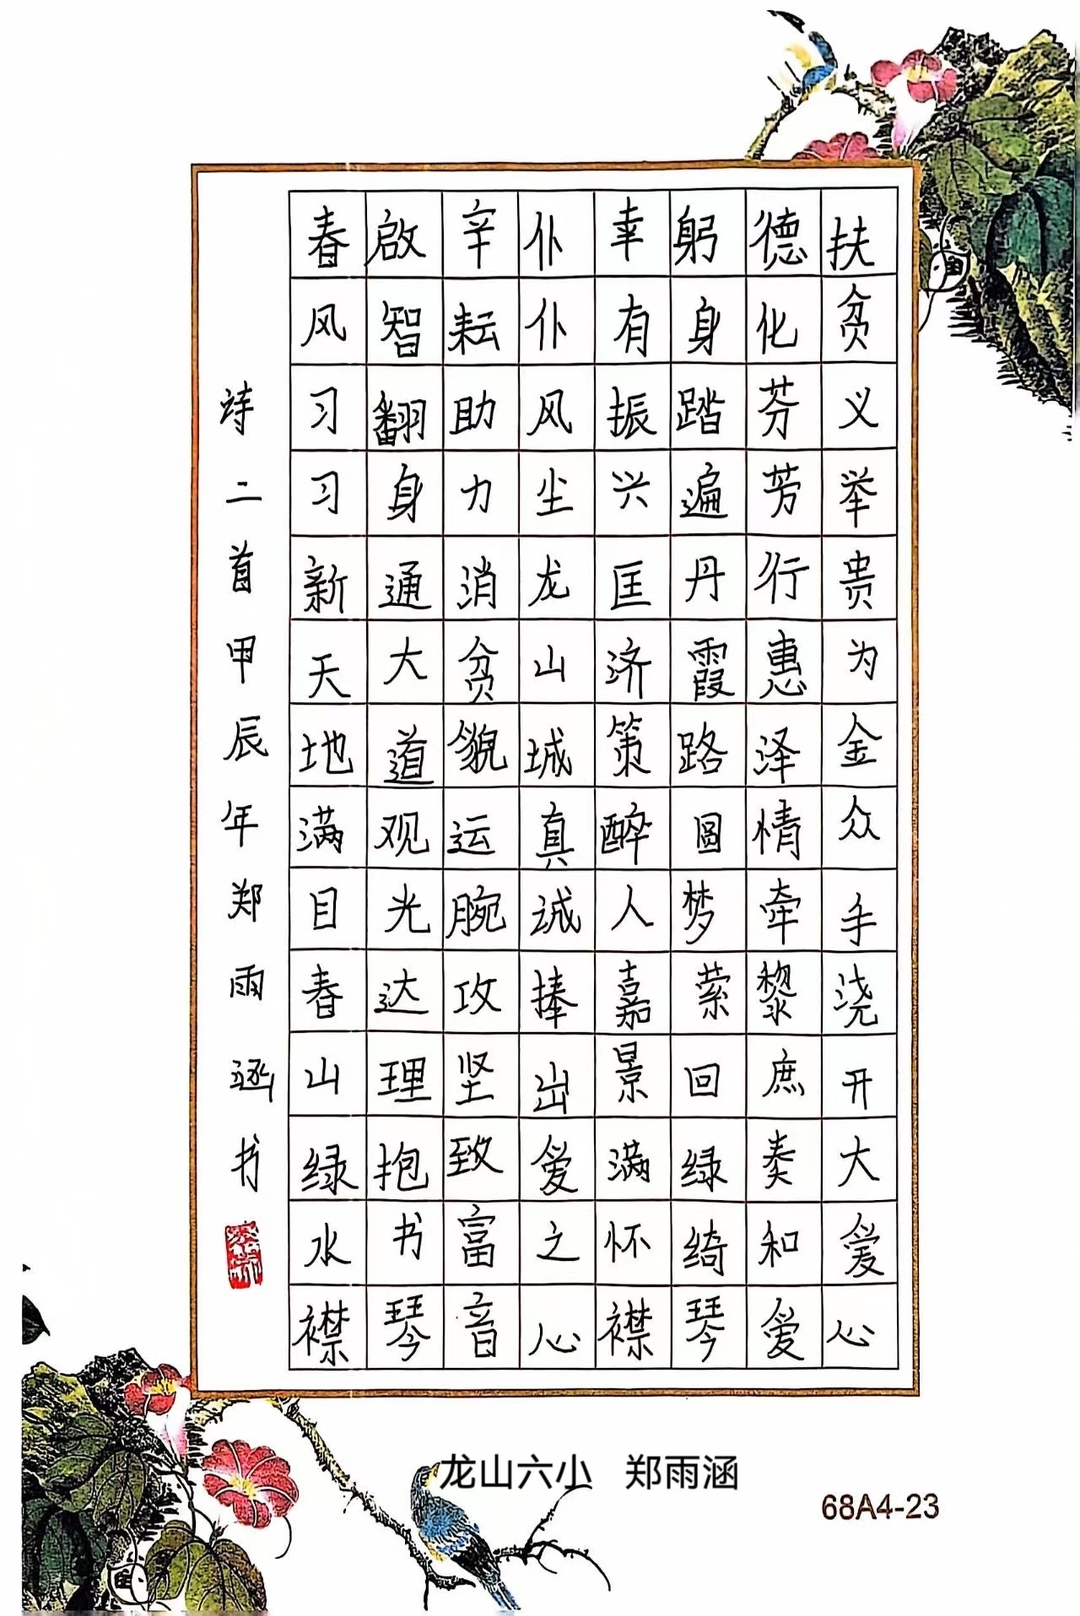 扶贫义举贵为金众手浇开大爱心
德化芬芳行惠泽情牵黎庶奏和爱
躬身踏遍丹霞路圆梦萦回绿绮琴
幸有振兴匡济策醉人嘉景满怀襟
仆仆风尘龙山城真诚捧出爱之心
辛耘助力消贫貌运腕攻坚致富音
啟智翻身通大道观光达理抱书琴
春风习习新天地满目春山绿水襟
诗二首甲辰年郑雨涵书
龙山六小 郑雨涵
68A4-23